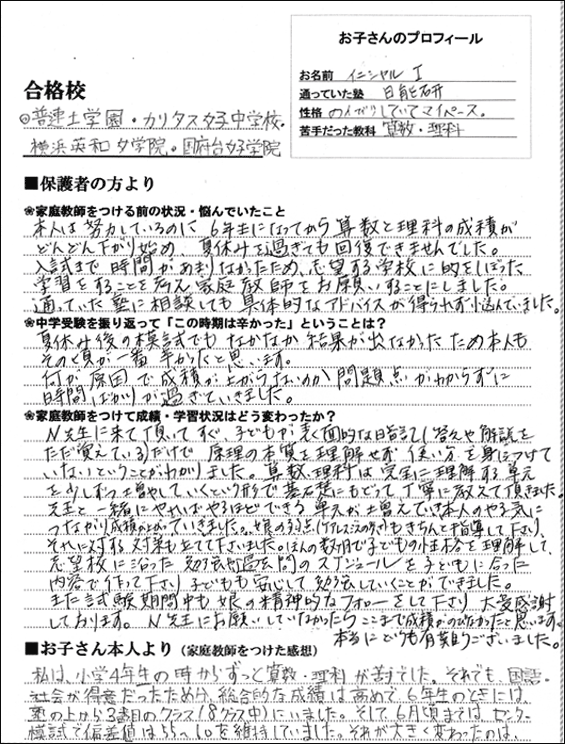 お子さんのプロフィール
お名前 イニシャル I
通っていた塾 日能研
性格 のんびりしていてマイペース。
苦手だった教科 算数・理科
合格校
◎普連土学園・カリタス女子中学校。
横浜英和女学院。国府台女子学院
■保護者の方より
❀家庭教師をつける前の状況・悩んでいたこと
本人は努力しているのに、6年生になってから算数と理科の成績が
どんどん下がり始め、夏休みを過ぎても回復できませんでした。
入試まで時間があまりなかったため、志望する学校に的をしぼった
学習をすることを考え家庭教師をお願いすることにしました。
通っていた塾に相談しても具体的なアドバイスが得られず悩んでいました。
❀中学受験を振り返って「この時期は辛かった」ということは?
夏休み後の模試でもなかなか結果が出なかったため本人も
その頃が一番辛かったと思います。
何が原因で成績が上がらないのか問題点がわからずに
時間ばかりが過ぎていきました。
❀家庭教師をつけて成績・学習状況はどう変わったか?
N先生に来て頂いてすぐ、子どもが表面的な暗記(答えや解説を
ただ覚えている)だけで原理の本質を理解せず使い方を身につけて
いないということがわかりました。算数、理科は完全に理解する単元
を少しずつ増やしていくという形で基礎にもどって丁寧に教えて頂きました。
先生と一緒にやればやるほどできる単元が増えていき本人のやる気に
つながり成績も上がっていきました。娘の弱点(ケアレスミスの多さ)もきちんと指導して下さり、
それに対する対策も立てて下さいました。ほんの数ヶ月で子どもの性格を理解して、
志望校に沿った勉強や過去問のスケジュールを子どもに合った
内容で作って下さり子どもも安心して勉強していくことができました。
また試験期間中も娘の精神的なフォローをして下さり大変感謝
しております。N先生にお願いしていなかったらここまで成績がのびなかったと思います。
本当にどうも有難うございました。
■お子さん本人より(家庭教師をつけた感想)
私は、小学4年生の時からずっと算数・理科が苦手でした。それでも、国語・
社会が得意だったため分、総合的な成績は高めで、6年生のときには
塾の上から3番目のクラス(8クラス中)にいました。そして6月頃まではセンター
模試で偏差値は55~60を維持していました。それが大きく変わったのは、